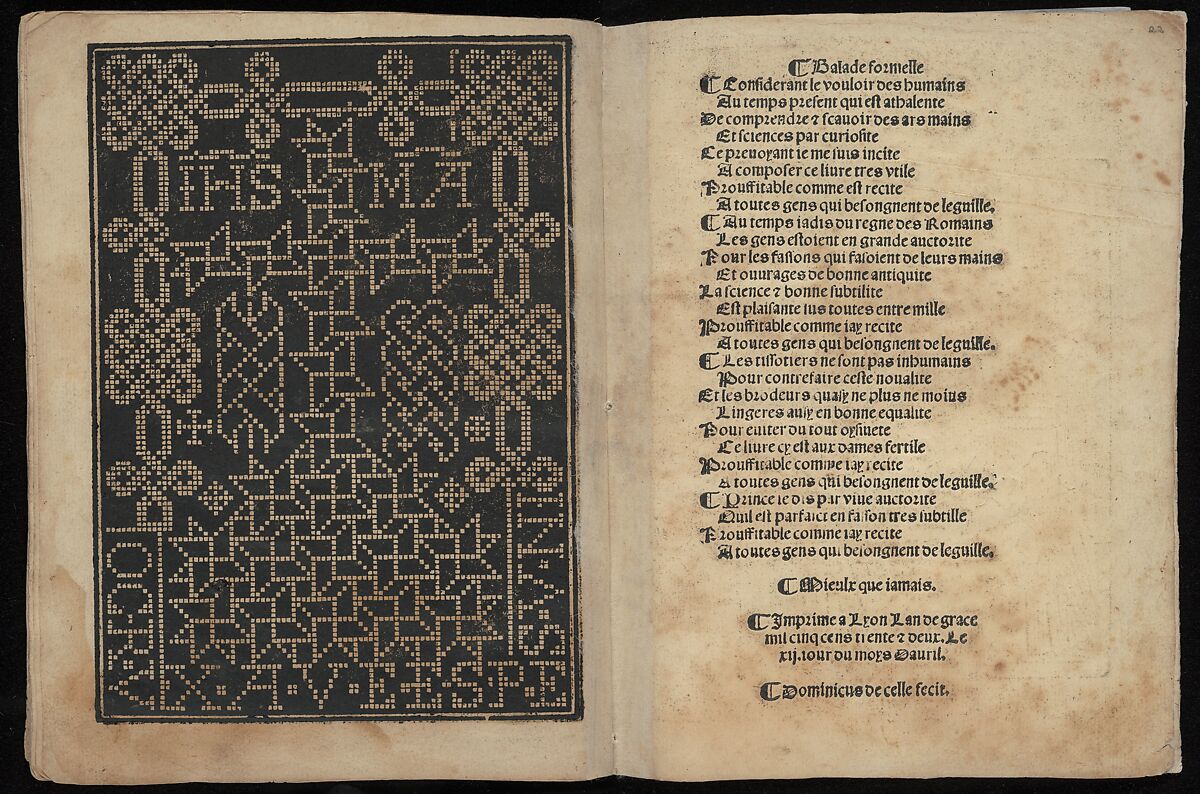 IHS MA
CRVX AVE SPE
22
¶ Balade formelle
¶ Considerant le vouloir des humains
Au temps present qui est athalente
De comprendre ⁊ scauoir des ars mains
Et sciences par curiosite
Ce preuoyant ie me suis incite
A composer ce liure tres vtile
Prouffitable comme est recite
A toutes gens qui besongnent de leguille.
¶ Au temps iadis du regne des Romains
Les gens estoient en grande auctorite
Pour les fassons qui fasoient de leurs mains
Et ouurages de bonne antiquite
La science ⁊ bonne subtilite
Est plaisante sus toutes entre mille
Prouffitable comme iay recite
A toutes gens qui besongnent de leguille.
¶ Les tissotiers ne sont pas inhumains
Pour contrefaire ceste noualite
Et les brodeurs quasy ne plus ne moins
Lingeres ausy en bonne equalite
Pour euiter du tout oysiuete
Ce liure cy est aux dames fertile
Prouffitable comme iay recite
A toutes gens qui besongnent de leguille.
¶ Prince ie dis par viue auctorite
Quil est parfaict en fasson tres subtille
Prouffitable comme iay recite
A toutes gens qui besongnent de leguille.
¶ Mieulx que iamais.
¶ Imprime a Lyon Lan de grace
mil cinq cens trente ⁊ deux. Le
xij. iour du moys Dauril.
¶ Dominicus de celle fecit.